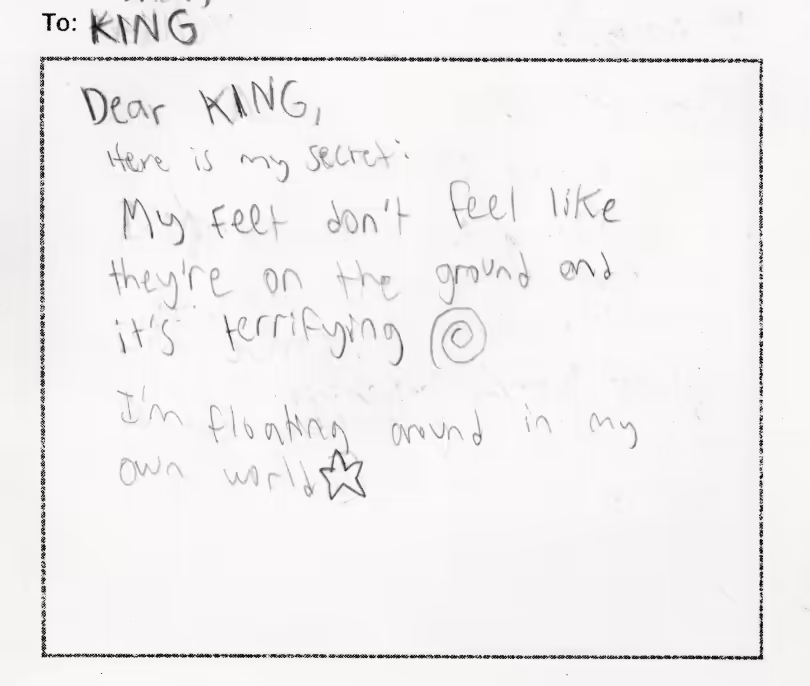 To: KING
Dear KING,
Here is my secret:
My feet don't feel like
they're on the ground and
it's terrifying
I'm floating around in my
own world